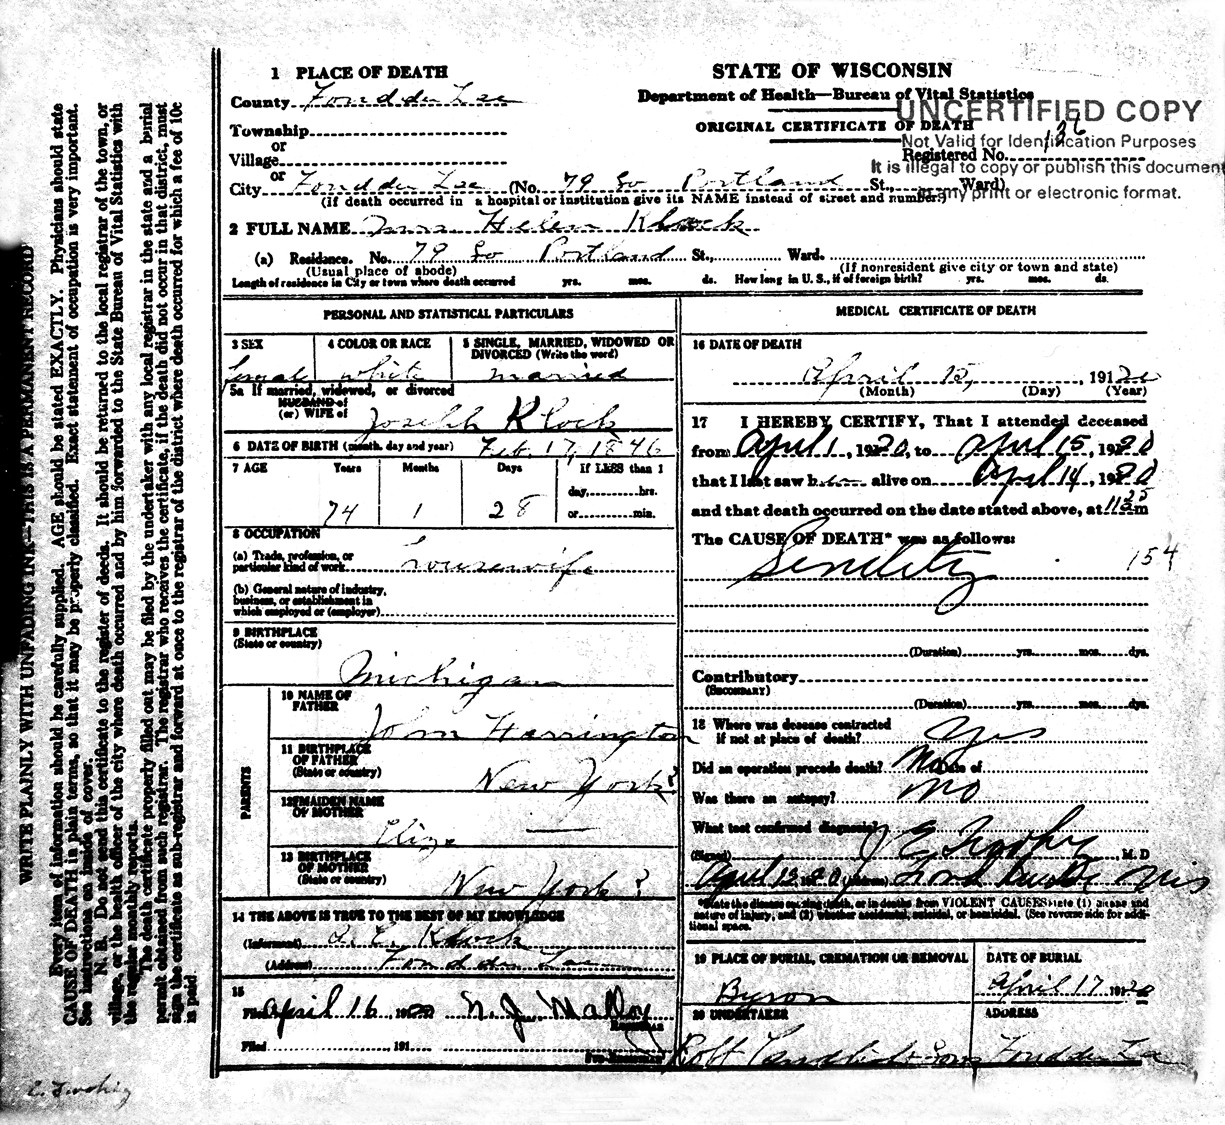 1 PLACE OF DEATH
County Fond du Lac
Township
or
Village
or
City Fond du Lac (No. 79 So Portland St., Ward)
(If death occurred in a hospital or institution give its NAME instead of street and number.)
STATE OF WISCONSIN
Department of Health—Bureau of Vital Statistics
ORIGINAL CERTIFICATE OF DEATH
Registered No. 136
UNCERTIFIED COPY
Not Valid for Identification Purposes
It is illegal to copy or publish this document
in any print or electronic format.
2 FULL NAME Mrs Helen Klock
(a) Residence. No. 79 So Portland St., Ward.
(Usual place of abode) (If nonresident give city or town and state)
Length of residence in City or town where death occurred yrs. mos. ds. How long in U. S., if of foreign birth? yrs. mos. ds.
PERSONAL AND STATISTICAL PARTICULARS
3 SEX 4 COLOR OR RACE 5 SINGLE, MARRIED, WIDOWED OR
DIVORCED (Write the word)
female white married
5a If married, widowed, or divorced
HUSBAND of
(or) WIFE of Joseph Klock
6 DATE OF BIRTH (month, day and year) Feb. 17, 1846
7 AGE Years Months Days If LESS than 1
day, hrs.
or min.
74 1 28
8 OCCUPATION
(a) Trade, profession, or
particular kind of work housewife
(b) General nature of industry,
business, or establishment in
which employed or (employer)
9 BIRTHPLACE
(State or country)
Michigan
PARENTS
10 NAME OF
FATHER
John Harrington
11 BIRTHPLACE
OF FATHER
(State or country) New York?
12 MAIDEN NAME
OF MOTHER
Eliza —
13 BIRTHPLACE
OF MOTHER
(State or country) New York?
14 THE ABOVE IS TRUE TO THE BEST OF MY KNOWLEDGE
(Informant) Klock
(Address) Fond du Lac
15
Filed April 16 1920 N. J. Malloy
Registrar
Filed , 191
MEDICAL CERTIFICATE OF DEATH
16 DATE OF DEATH
April 15, , 1920
(Month) (Day) (Year)
17 I HEREBY CERTIFY, That I attended deceased
from April 1, 1920, to April 15, 1920
that I last saw h alive on April 14, 1920
and that death occurred on the date stated above, at 11 25 m
The CAUSE OF DEATH* was as follows:
Senility 154
(Duration) yrs. mos. dys.
Contributory
(SECONDARY)
(Duration) yrs. mos. dys.
18 Where was desease contracted
if not at place of death? yes
Did an operation precede death? No Date of
Was there an autopsy? no
What test confirmed diagnosis?
(Signed) J E Twohig , M. D
April 1920 (Address) Fond du Lac Wis
*State the disease causing death, or in deaths from VIOLENT CAUSES state (1) means and
nature of injury, and (2) whether accidental, suicidal, or homicidal. (See reverse side for addi-
tional space.
19 PLACE OF BURIAL, CREMATION OR REMOVAL DATE OF BURIAL
Byron April 17 1920
20 UNDERTAKER ADDRESS
& Sons Fond du Lac
WRITE PLAINLY WITH UNFADING INK—THIS IS A PERMANENT RECORD
Every item of information should be carefully supplied. AGE should be stated EXACTLY. Physicians should state
CAUSE OF DEATH in plain terms, so that it may be properly classified. Exact statement of occupation is very important.
See instructions on inside of cover.
N. B. Do not send this certificate to the register of deeds. It should be returned to the local registrar of the town, or
village, or the health officer of the city where death occurred and by him forwarded to the State Bureau of Vital Statistics with
the regular monthly reports.
The death certificate properly filled out may be filed by the undertaker with any local registrar in the state and a burial
permit obtained from such registrar. The registrar who receives the certificate, if the death did not occur in that district, must
sign the certificate as sub-registrar and forward at once to the registrar of the district where death occurred for which a fee of 10c
is paid
E. Twohig